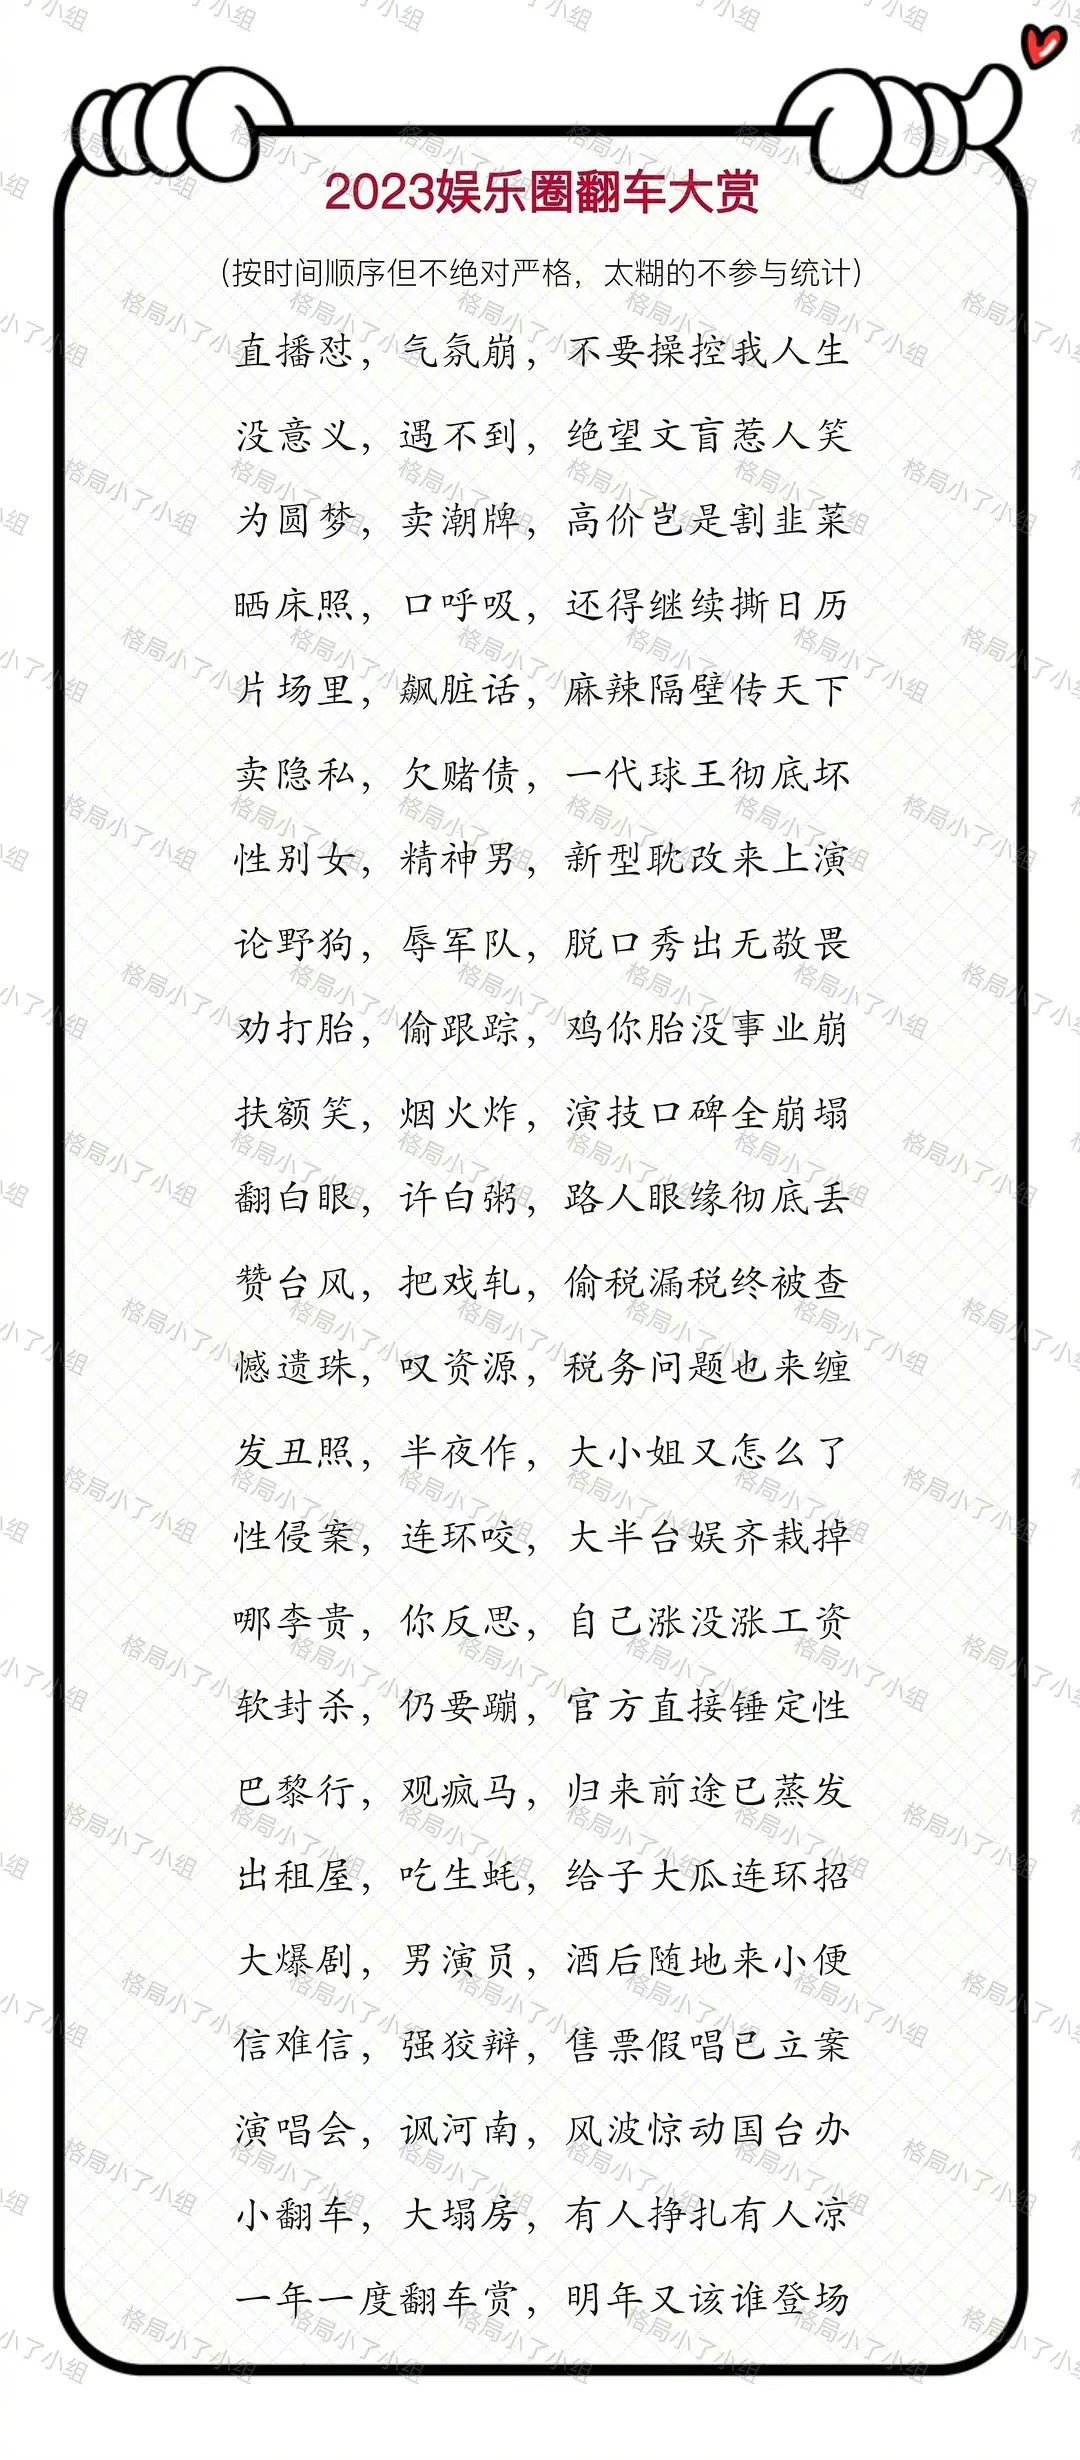 2023娱乐圈翻车大赏
（按时间顺序但不绝对严格，太糊的不参与统计）
直播怼，气氛崩，不要操控我人生
没意义，遇不到，绝望文盲惹人笑
为圆梦，卖潮牌，高价岂是割韭菜
晒床照，口呼吸，还得继续撕日历
片场里，飙脏话，麻辣隔壁传天下
卖隐私，欠赌债，一代球王彻底坏
性别女，精神男，新型耽改来上演
论野狗，辱军队，脱口秀出无敬畏
劝打胎，偷跟踪，鸡你胎没事业崩
扶额笑，烟火炸，演技口碑全崩塌
翻白眼，许白粥，路人眼缘彻底丢
赞台风，把戏轧，偷税漏税终被查
憾遗珠，叹资源，税务问题也来缠
发丑照，半夜作，大小姐又怎么了
性侵案，连环咬，大半台娱齐栽掉
哪李贵，你反思，自己涨没涨工资
软封杀，仍要蹦，官方直接锤定性
巴黎行，观疯马，归来前途已蒸发
出租屋，吃生蚝，给子大瓜连环招
大爆剧，男演员，酒后随地来小便
信难信，强狡辩，售票假唱已立案
演唱会，讽河南，风波惊动国台办
小翻车，大塌房，有人挣扎有人凉
一年一度翻车赏，明年又该谁登场
格局小了小组